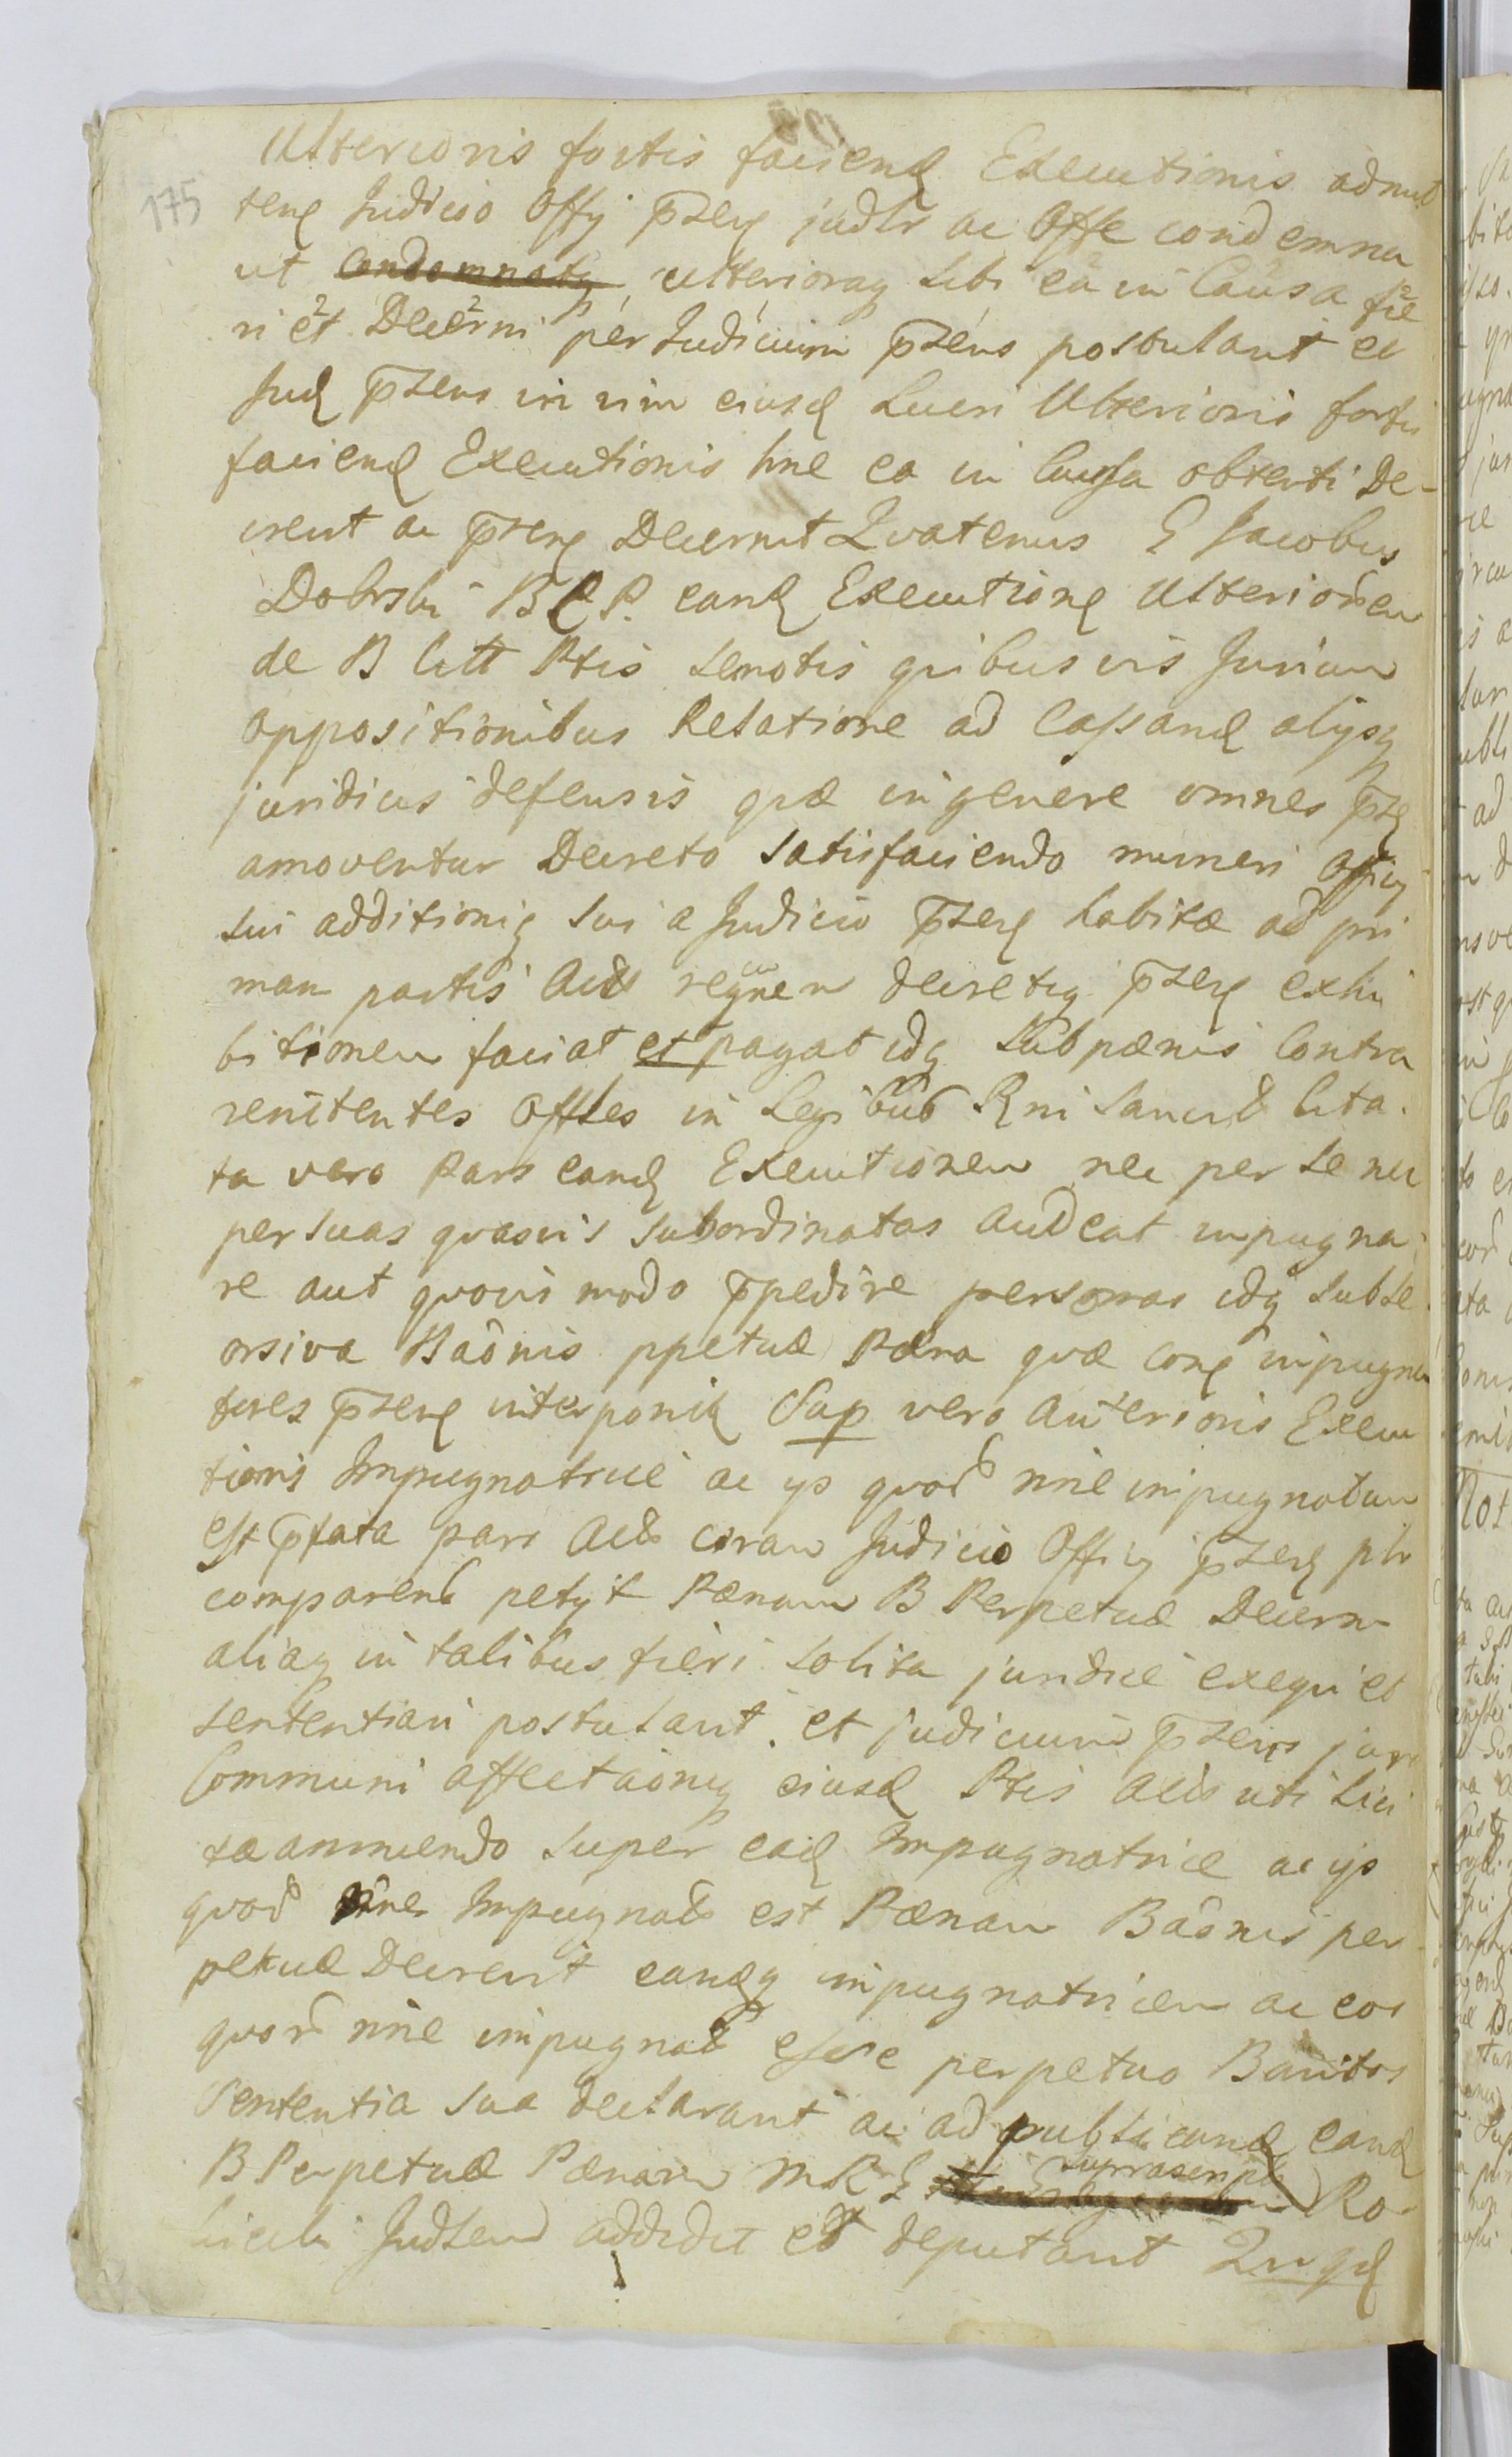 175
Ulterioris fortis faciend Executionis admit
ten Judicio Offy pzen judlr ac Offe condemna
ut Condemnatq ulterioraq sibi ea in Causa fie
ri et Decerni per Judicium pzens postulavit et
Jud pzens in vim eiusd Lucri Ulterioris fortis
faciend Executionis hne ea in Causa obtenti De-
crevit ac pzens Decernit Quatenus G Jacobus
Dobrski BCP. eand Executione Ulteriorem
de B Citt Ptis semotis quibusvis Jurium
oppositionibus Relatione ad Cassand alijsq
juridicis defensis quæ in genere omnes pze
amoventur Decreto satisfaciendo muneri Officy
sui additioniq sui a Judicio pzen habitæ ad pri
mam partis Act requnem decretiq pzen exhi
bitionem faciat et pagat idq sub pænis Contra
renitentes Offles in Legibus Rni sancit Cita
ta vero Pars eand Executionem nec per se nec
per suas quasvis subordinatas audeat impugna
re aut quovis modo ppedire personas idq sub se
orsiva Baonis ppetuæ Pæna quæ con impugna
tores pzens interponit Sup vero anterioris Execu
tionis Impugnatrice ac ys quod nne impugnatum
est pfata pars Act coram Judicio Officy pzen plr
comparens petyt Pænam B Perpetuæ Decerni
aliaq in talibus fieri solita juridice exequi et
sententiari postulavit. et judicium pzens jure
Communi affectaoniq eiusd Ptis Actis uti lici
tæ annuendo super ead Impugnatrice ac ys
quod nne Impugnat est Pænam Baonis per
petuæ Decrevit eandq impugnatricem ac eos
quod nne impugnat esse perpetuo Banitos
Sententia sua declaravit ac ad publicand eand
B Perpetuæ Pænam M R G suprascript Ro
sicki Judlem addidit et deputavit